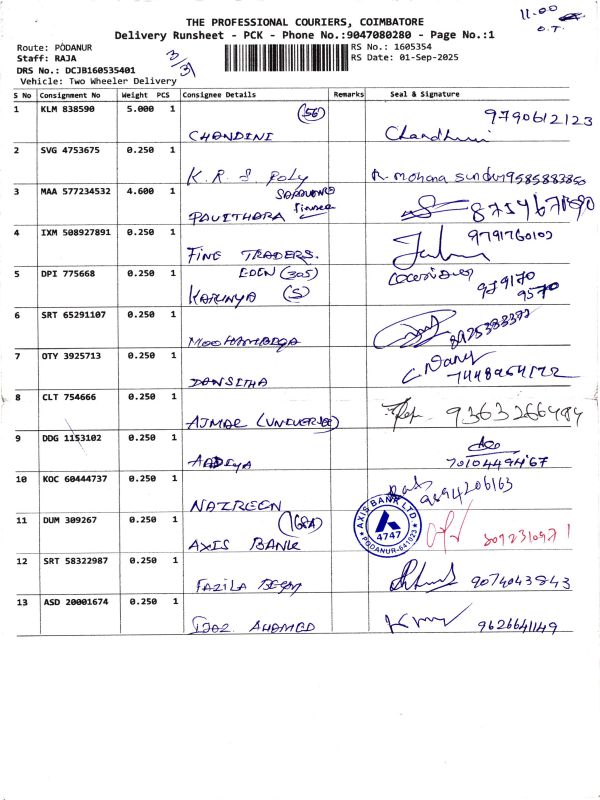 THE PROFESSIONAL COURIERS, COIMBATORE
11.00
O.T.
Delivery Runsheet - PCK - Phone No.:9047080280 - Page No.:1
Route: PODANUR
RS No.: 1605354
Staff: RAJA
RS Date: 01-Sep-2025
DRS No.: DCJB160535401
3/31
Vehicle: Two Wheeler Delivery
S No Consignment No Weight PCS Consignee Details Remarks Seal & Signature
1 KLM 838590 5.000 1 (56) 9790612123
CHANDINI
2 SVG 4753675 0.250 1
K.R.S POLY R. mohana sundar 9585883850
3 MAA 577234532 4.600 1
PAVITHARA
4 IXM 508927891 0.250 1 9791760102
FINE TRADERS.
5 DPI 775668 0.250 1 EDEN (305)
KARUNYA (S) 979170
9570
6 SRT 65291107 0.250 1
MOOHAMBIGA 8925333372
7 OTY 3925713 0.250 1
DANSITHA
8 CLT 754666 0.250 1
AJMAL 9363266484
9 DDG 1153102 0.250 1
AADIYA
10 KOC 60444737 0.250 1
NAZREEN 9894206163
11 DUM 309267 0.250 1
AXIS BANK
AXIS BANK LTD
4747
PODANUR-641023
12 SRT 58322987 0.250 1
FAZILA BEGM 9074043843
13 ASD 20001674 0.250 1
IJAZ AHAMED 9626641149